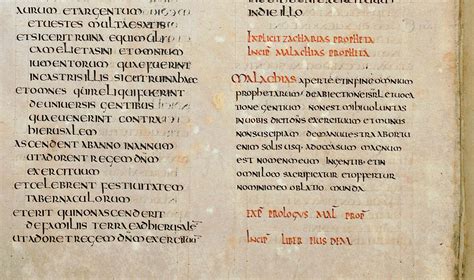 aurum et argentum
et uestes multae satis
et sic erit ruina equi muli
cameli et asini et omnium
iumentorum quae fuerint
in castris illis sicut ruina haec
et omnes qui reliqui fuerint
de uniuersis gentibus
quae uenerint contra
hierusalem
ascendent ab anno in annum
ut adorent regem dnm
exercituum
et celebrent festiuitatem
tabernaculorum
et erit qui non ascenderit
de familiis terrae ad hierusalem
ut adoret regem dnm exercituum
in die illo
Explicit Zacharias propheta
Incip Malachias propheta
Malachias aperte et in fine omnium
prophetarum de abiectione isrl et uoca
tione gentium non est mihi uoluntas
in uobis dicit dns exercituum et munus
non suscipiam de manu uestra ab ortu
enim solis usq ad occasum magnum
est nomen meum in gentib et in
omni loco sacrificatur et offertur
nomini meo oblatio munda
Exp prologus Mal prop
Incip liber eius